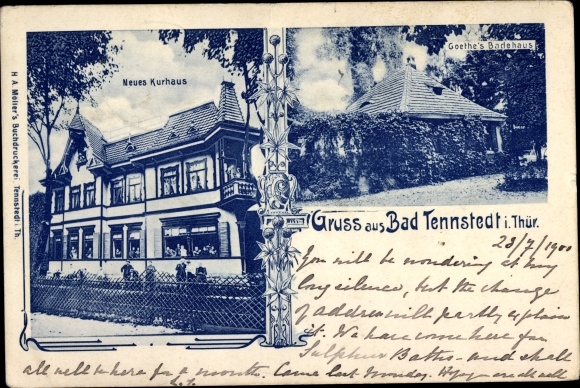 Neues Kurhaus
Goethe's Badehaus
H. A. Möller's Buchdruckerei, Tennstedt i. Th.
Gruss aus Bad Tennstedt i. Thür.
23/7/1900
You will be wondering at my
long silence, but the change
of address will partly explain
it. We have come here for
Sulphur Baths - and shall
all well be here for a month. Came last Monday.